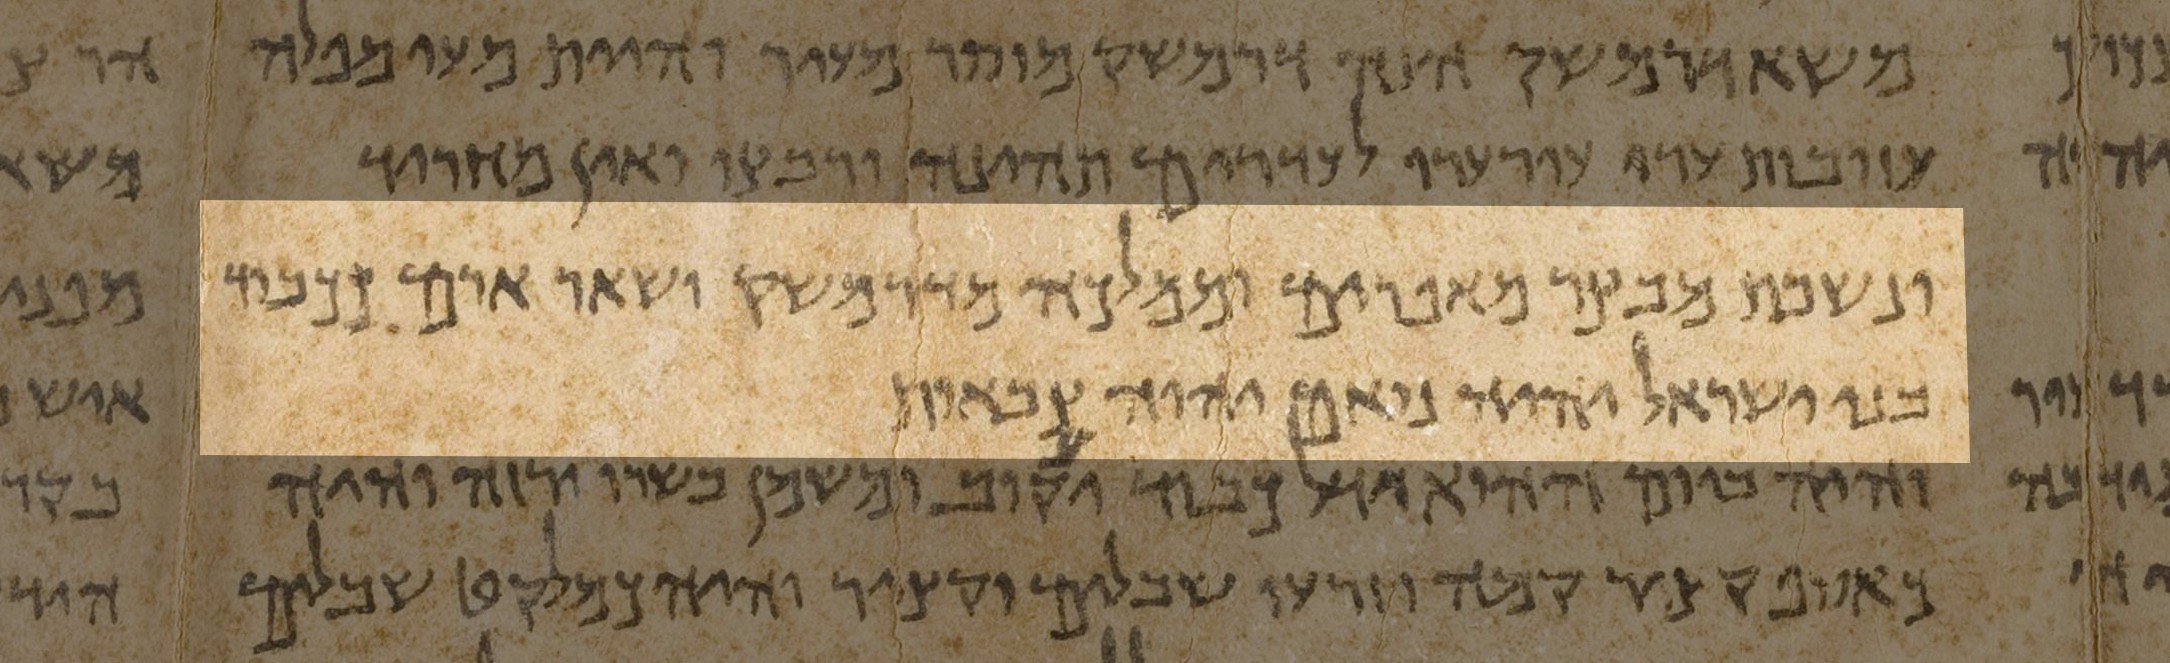 משא דרמשק הנה דרמשק מוסר מעיר והיית מעי מפלה
עזובות ערי עורערו לעדריים תהינה ורבצו ואין מחריד
ונשבת מבצר מאפרים וממלכה מדרמשק ושאר ארם ככבוד
בני ישראל יהיה נואם יהוה צבאות
והיה ביום ההוא ידל כבוד יעקוב ומשמן בשרו ירזה והיה
כאסף קציר קמה וזרעו שבלים יקציר והיה כמלקט שבלים